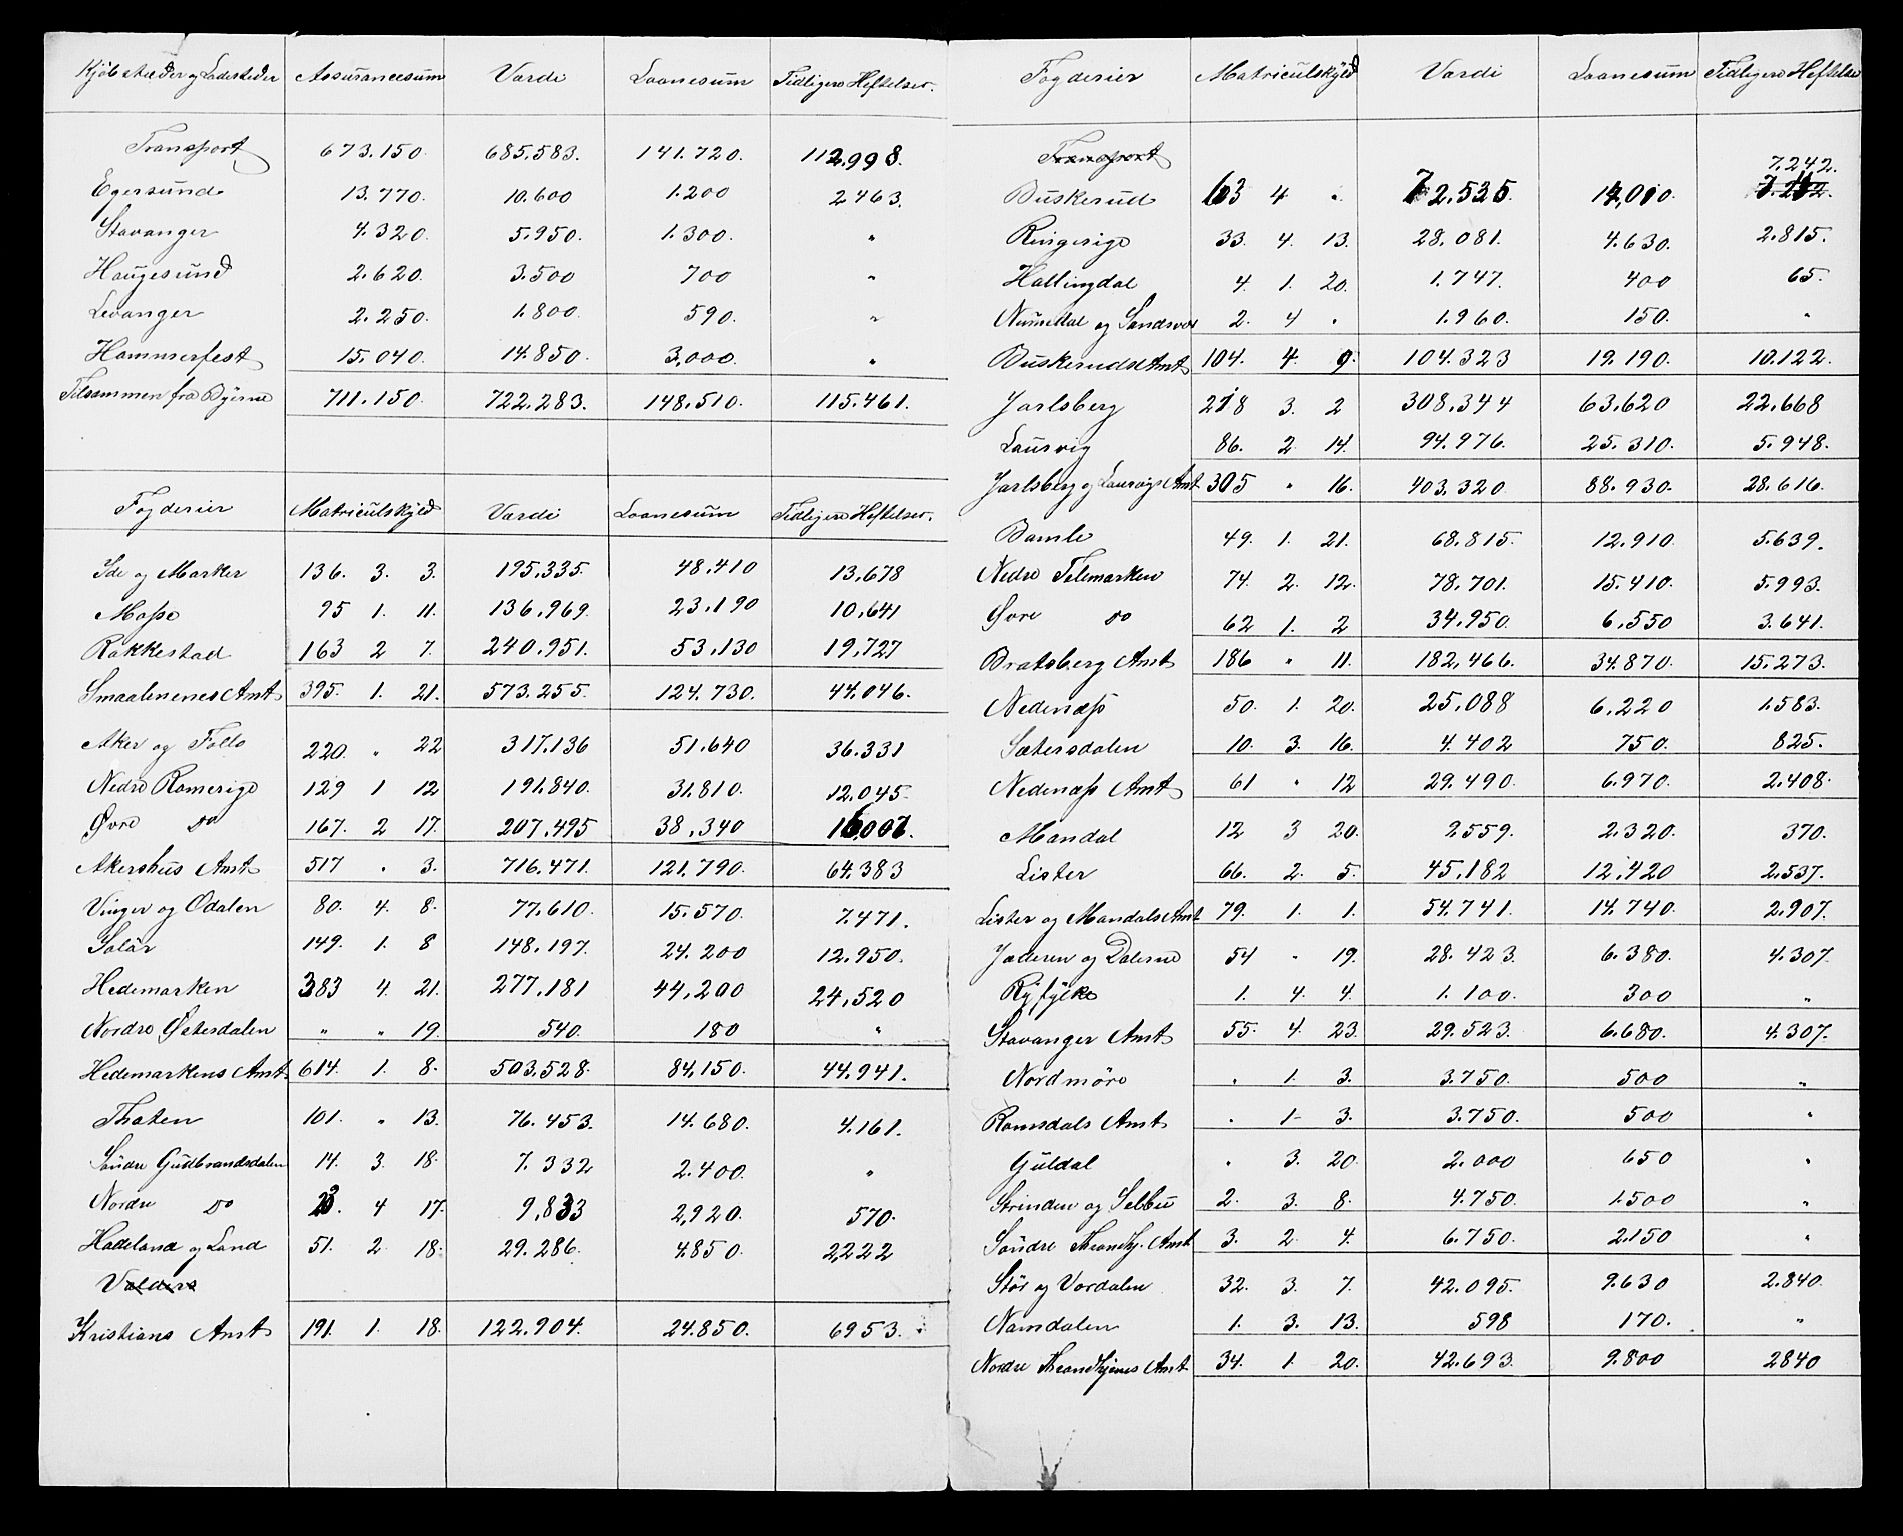 Kjøbstæder og Ladesteder Assurancesum Værdi Laanesum Tidligere Heftelser.
Transport 673.150. 685.583. 141.720. 112.998.
Egersund 13.770. 10.600 1.200 2463.
Stavanger 4.320. 5.950. 1.300. "
Haugesund 2.620. 3.500 700 "
Levanger 2.250. 1.800. 590. "
Hammerfest 15.040. 14.850. 3,000. "
Tilsammen fra Byerne 711.150. 722.283. 148.510. 115.461.
Fogderier Matriculskyld Værdi Laanesum Tidligere Heftelser.
Ide og Marker 136. 3. 3. 195.335. 48.410 13,678
Mosse 95 1. 11. 136.969. 23.190 10.641
Rakkestad 163 2 7. 240.951. 53.130 19.727
Smaalenenes Amt 395. 1. 21. 573.255. 124.730. 44.046.
Aker og Follo 220. " 22 317.136 51.640 36.331
Nedre Romerige 129 1 12 191.840. 31.810. 12.045.
Øvre do 167. 2 17. 207.495 38.340 16,007.
Akershus Amt 517 " 3. 716.471. 121.790. 64.383
Vinger og Odalen 80. 4. 8. 77.610. 15.570. 7.471.
Solør 149. 1. 8 148.197. 24.200 12.950.
Hedemarken 383 4. 21. 277.181 44,200 24,520
Nordre Østerdalen " " 19. 540. 180 "
Hedemarkens Amt. 614. 1. 8. 503.528. 84,150. 44.941.
Thoten 101. " 13. 76.453. 14.680. 4.161.
Søndre Gudbrandsdalen 14. 3. 18. 7.332 2.400. "
Nordre do 23. 4 17. 9,833 2,920. 570.
Hadeland og Land 51. 2 18. 29.286. 4.850. 2,222
Valders
Kristians Amt 191. 1. 18. 122.904. 24.850. 6953.
Fogderier Matriculskyld Værdi Laanesum Tidligere Heftelse
Transport
7,242.
Buskerud 63 4 " 72.535. 14,010. 7.242.
Ringerige 33. 4. 13. 28.081. 4.630. 2.815.
Hallingdal 4. 1. 20. 1.747. 400 65.
Numedal og Sandsvær 2. 4 " 1.960. 150. "
Buskeruds Amt 104. 4. 9. 104.323 19.190. 10.122.
Jarlsberg 218 3. 2 308.344 63.620 22.668
Laurvig 86. 2. 14. 94.976. 25.310. 5.948.
Jarlsberg og Laurvigs Amt 305 " 16. 403.320 88.930. 28.616.
Bamle 49. 1. 21. 68.815. 12.910. 5.639.
Nedre Telemarken 74. 2. 12. 78.701. 15.410. 5.993.
Øvre do 62 1. 2 34.950. 6.550 3.641.
Bratsberg Amt 186 " 11. 182,466. 34.870. 15.273.
Nedenæs 50. 1. 20. 25.088 6.220 1.583.
Sætersdalen 10. 3. 16. 4.402 750. 825.
Nedenæs Amt 61 " 12 29.490. 6.970. 2.408.
Mandal 12 3 20. 2559. 2.320. 370.
Lister 66. 2. 5. 45.182 12,420 2.537.
Lister og Mandals Amt 79. 1. 1. 54.741. 14.740. 2.907.
Jæderen og Dalerne 54 " 19. 28.423. 6.380. 4.307.
Ryfylke 1. 4. 4. 1.100. 300 "
Stavanger Amt 55. 4. 23. 29.523. 6.680. 4.307.
Nordmøre " 1. 3. 3.750. 500 "
Romsdals Amt " 1. 3. 3.750. 500 "
Guldal " 3. 20. 2.000 650 "
Strinden og Selbu 2. 3. 8. 4.750. 1.500 "
Søndre Throndhj. Amt 3. 2. 4. 6.750. 2.150 "
Stør og Værdalen 32. 3. 7. 42.095. 9.630 2.840.
Namdalen 1. 3. 13. 598 170. "
Nordre Throndhjems Amt 34. 1. 20. 42.693. 9.800 2840